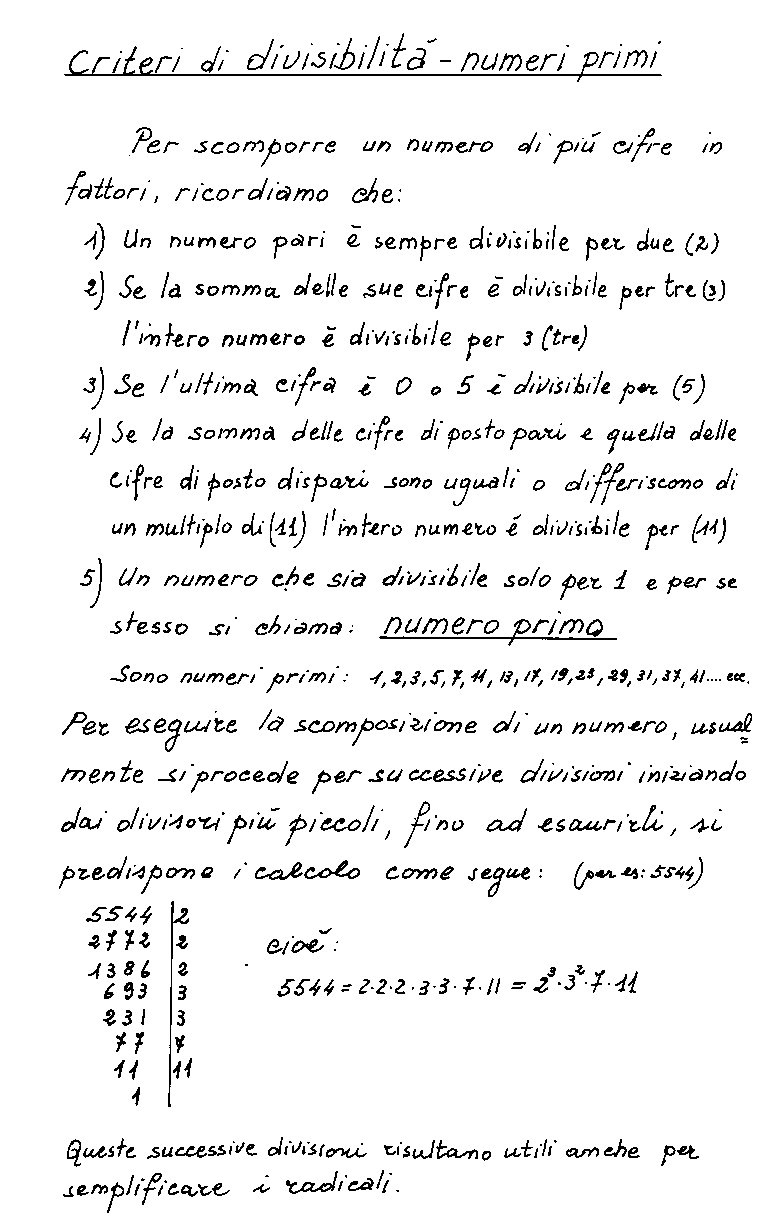 Criteri di divisibilità - numeri primi
Per scomporre un numero di più cifre in
fattori, ricordiamo che:
1) Un numero pari è sempre divisibile per due (2)
2) Se la somma delle sue cifre è divisibile per tre (3)
l'intero numero è divisibile per 3 (tre)
3) Se l'ultima cifra è 0 o 5 è divisibile per (5)
4) Se la somma delle cifre di posto pari e quella delle
cifre di posto dispari sono uguali o differiscono di
un multiplo di (11) l'intero numero é divisibile per (11)
5) Un numero che sia divisibile solo per 1 e per se
stesso si chiama: numero primo
Sono numeri primi: 1,2,3,5,7,11,13,17,19,23,29,31,37,41.... ecc.
Per eseguire la scomposizione di un numero, usual=
mente si procede per successive divisioni iniziando
dai divisori più piccoli, fino ad esaurirli, si
predispone i calcolo come segue: (per es: 5544)
5544 | 2
2772 | 2
1386 | 2
693 | 3
231 | 3
77 | 7
11 | 11
1 |
cioè:
5544 = 2·2·2·3·3·7·11 = 2³·3²·7·11
Queste successive divisioni risultano utili anche per
semplificare i radicali.